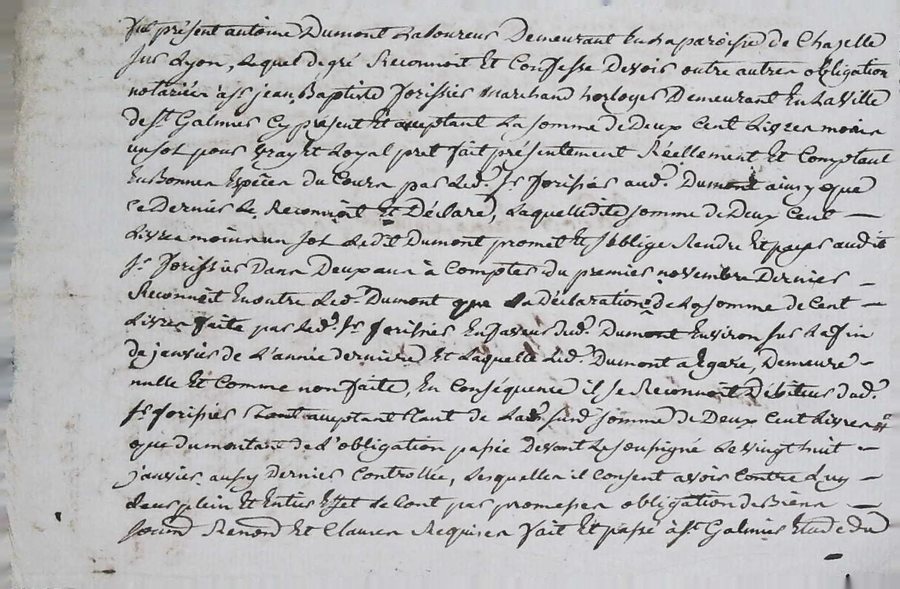 fut présent antoine Dumont Laboureur Demeurant En La paroisse de Chazelle
sur Lyon, Lequel de gré Reconnoit Et Confesse Devoir outre autres obligation
notariée à sr jean Baptiste forissier Marchand horloger Demeurant En La Ville
de st Galmier Cy présent Et acceptant La somme de Deux Cent Livres moins
un sol pour Vray Et Loyal pret fait présentement Réellement Et Comptant
En Bonnes Espèces du Cours par Led. Sr forissier aud. Dumont ainsy que
Ce Dernier Le Reconnoit Et Déclare, Laquelle dite somme de Deux Cent
Livres moins un sol Ledit Dumont promet Et soblige Rendre Et payer audit
Sr forissier Dans Deux ans à Compter du premier novembre Dernier
Reconnoit En outre Led. Dumont que La déclaration de La somme de Cent
Livres faite par Led. Sr forissier En faveur dud. Dumont Environ sur La fin
de janvier de L'année dernière Et Laquelle Led. Dumont a Egaré, Demeure
nulle Et Comme non faite, En Conséquence il se Reconnoit Débiteur dud.
Sr forissier tant de Lad. somme de Deux Cent Livres
que du montant de L'obligation passée Devant Le soussigné Le vingt huit
janvier aussy Dernier Controllée, Lesquelles il Consent avoir Contre Luy
Leur plein Et Entier Effet de Cont par promesses obligation de Biens
Renond Et Clauses Requises fait Et passé à st Galmier Etude du